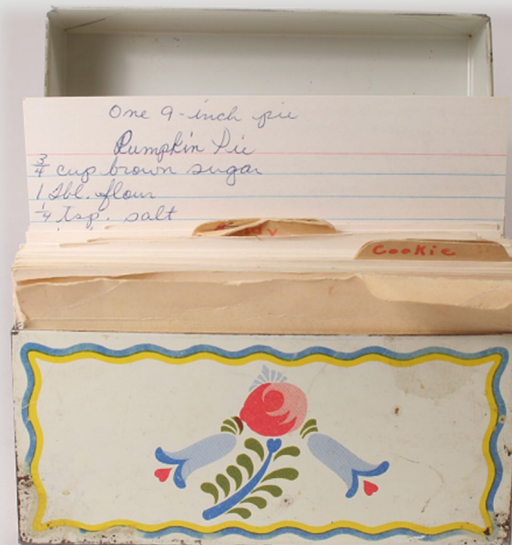 One 9-inch pie
Pumpkin Pie
3/4 cup brown sugar
1 Tbl. flour
1/4 tsp. salt
Cookie